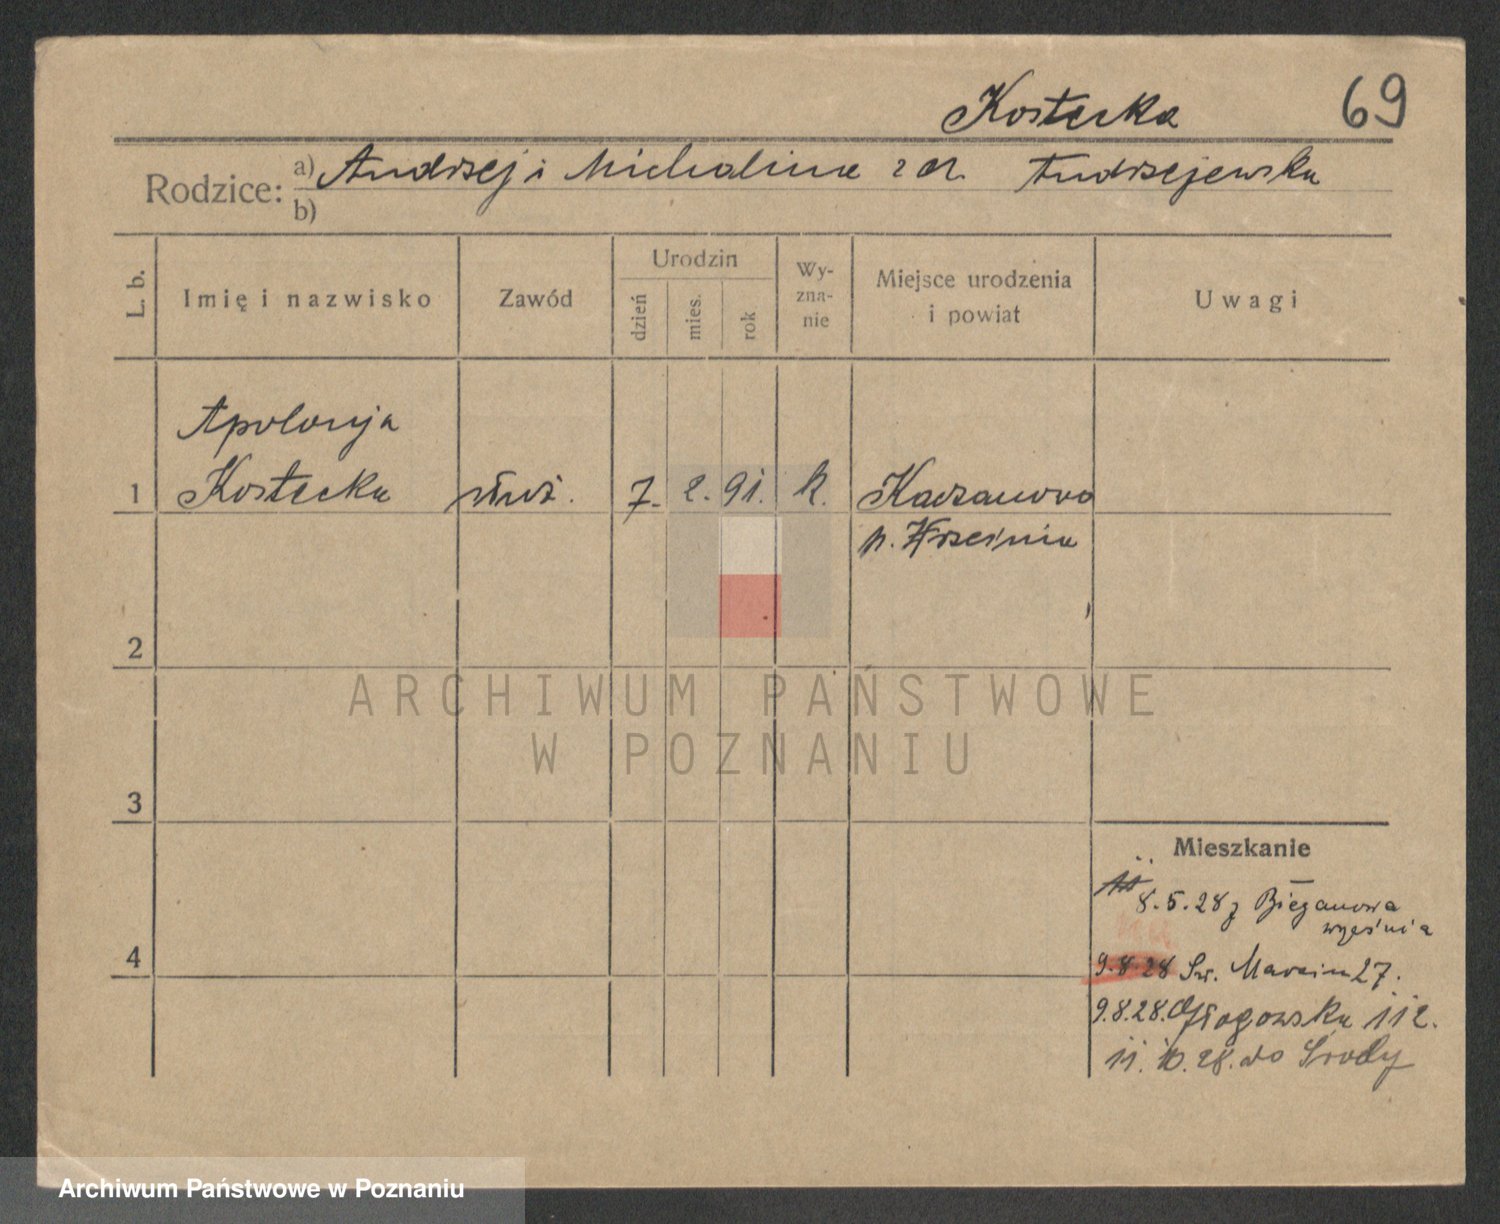 Kostecka 69
Rodzice: a) Andrzej i Michalina z d. Andrzejewska
b)
L. b. Imię i nazwisko Zawód Urodzin dzień mies. rok Wy-zna-nie Miejsce urodzenia i powiat Uwagi
Apolonja
1 Kostecka służ. 7. 2. 91. k. Kaczanowo
p. Września
2
ARCHIWUM PAŃSTWOWE
W POZNANIU
3
Mieszkanie
8.5.28 z Bieganowa
Września
4
9.8.28 Św. Marcin 27.
9.8.28. Głogowska 112.
11.10.28. do Środy
Archiwum Państwowe w Poznaniu